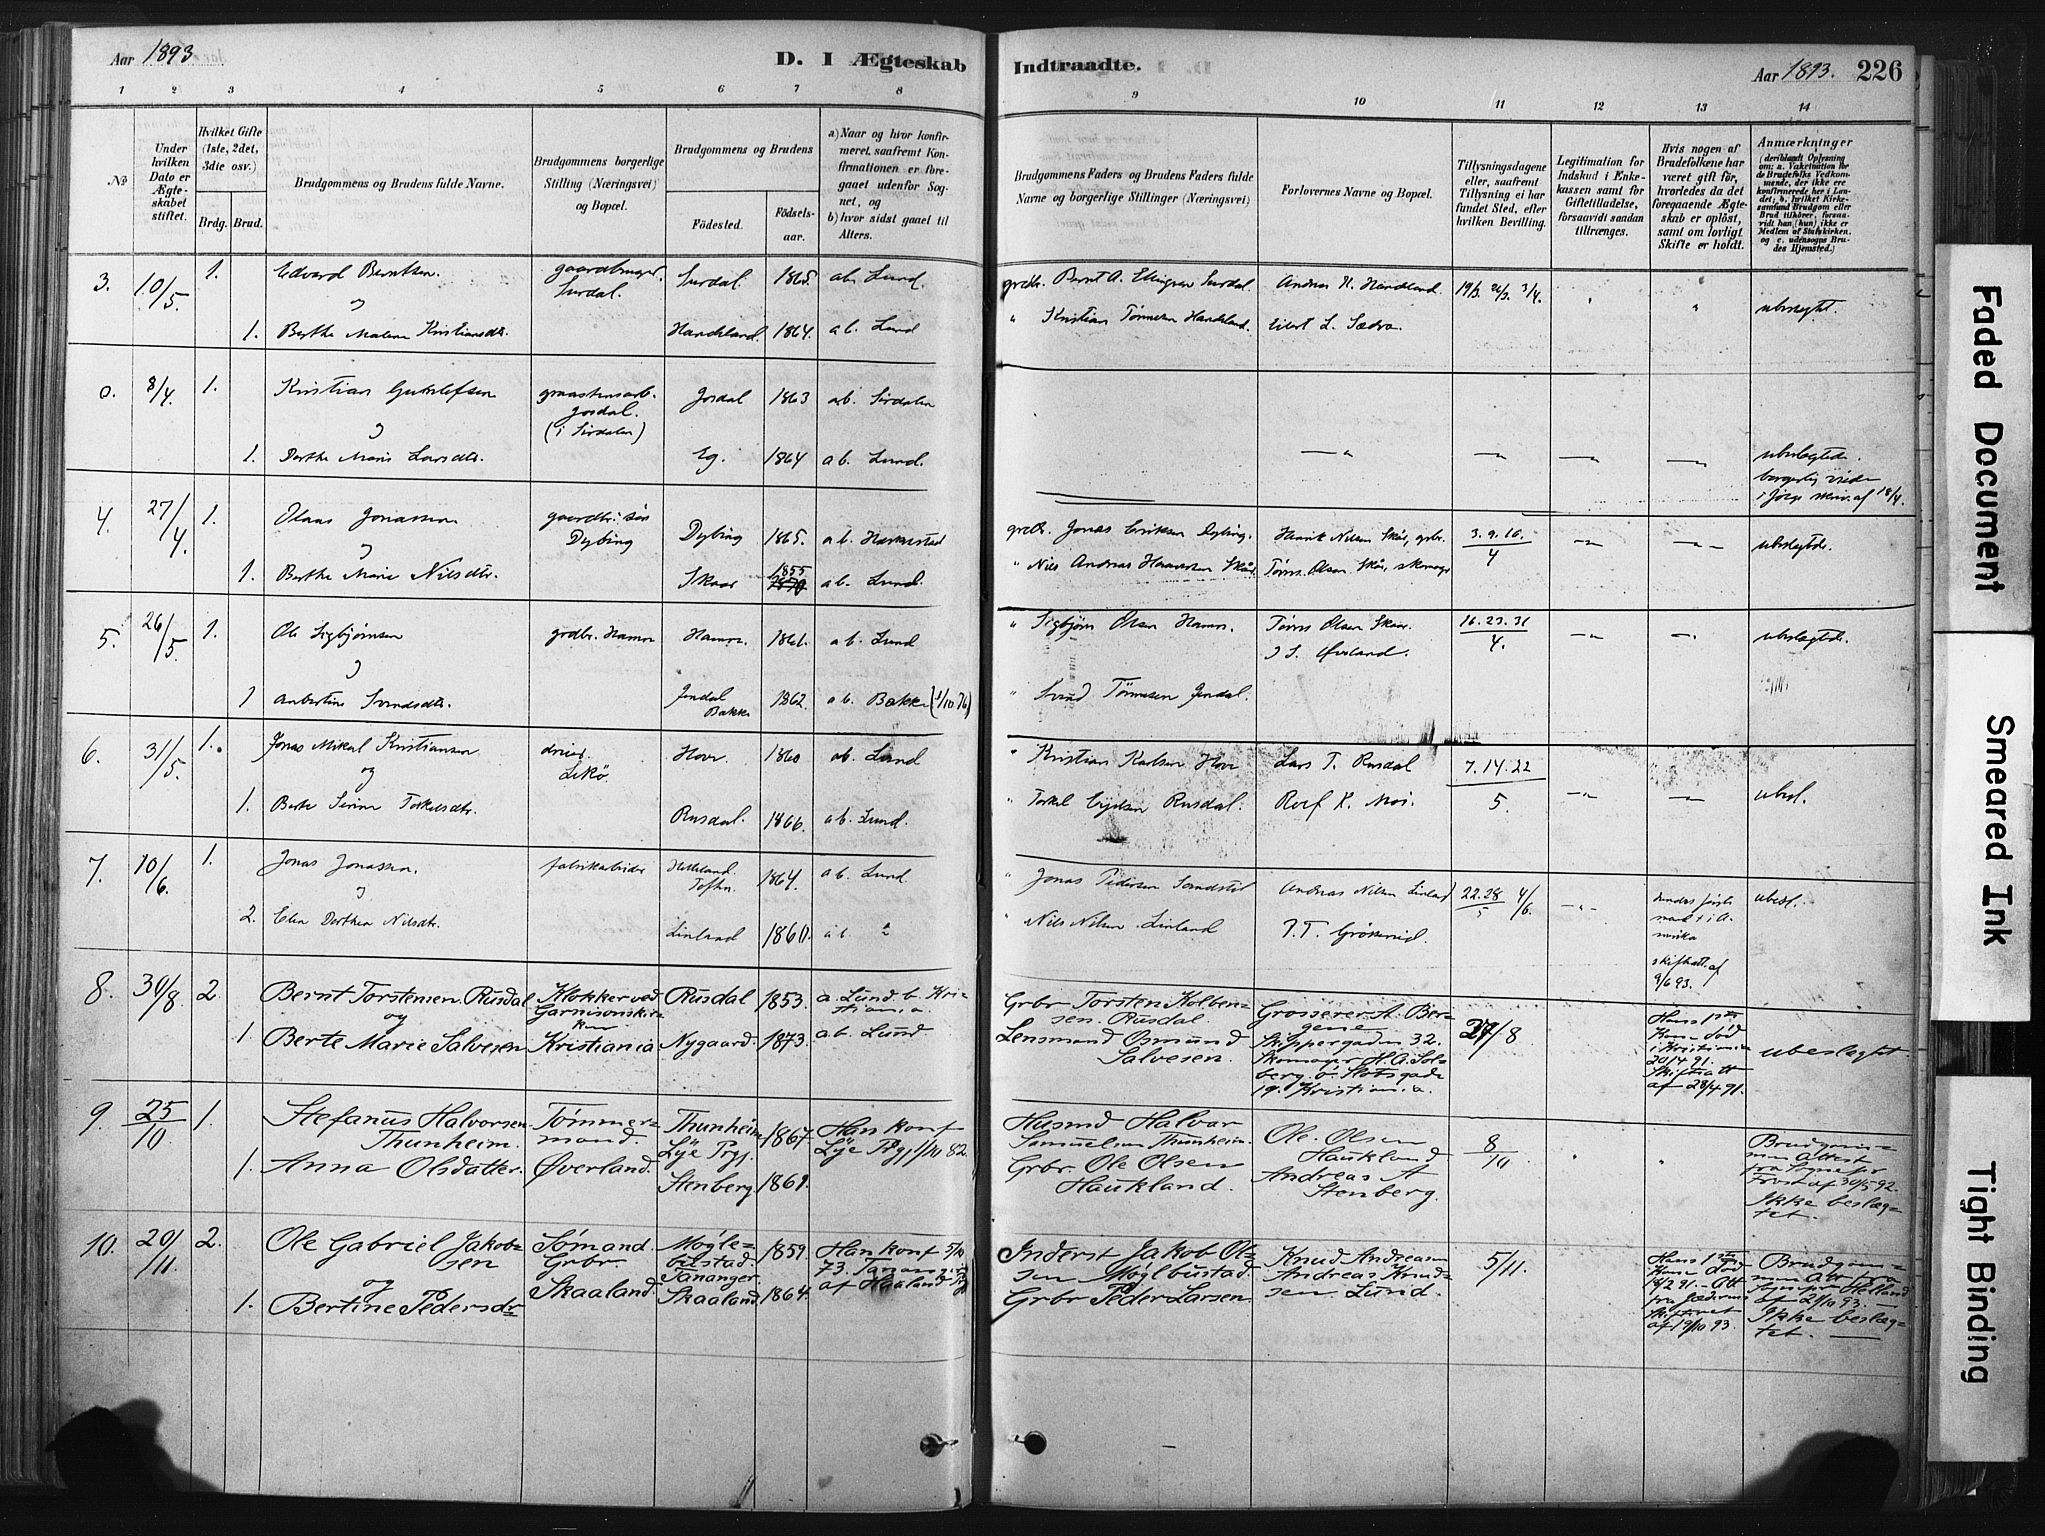 Aar 1893
D. I Ægteskab
Indtraadte.
Aar 1893. 226
1 2 3 4 5 6 7 8 9 10 11 12 13 14
№
Under hvilken Dato er Ægteskabet stiftet.
Hvilket Gifte (1ste, 2det, 3die osv.)
Brdg. Brud.
Brudgommens og Brudens fulde Navne.
Brudgommens borgerlige Stilling (Næringsvei) og Bopæl.
Brudgommens og Brudens
Födested.
Födsels-aar.
a) Naar og hvor konfirmeret, saafremt Konfirmationen er foregaaet udenfor Sognet, og
b) hvor sidst gaaet til Alters.
Brudgommens Faders og Brudens Faders fulde Navne og borgerlige Stillinger (Næringsvei)
Forlovernes Navne og Bopæl.
Tillysningsdagene eller, saafremt Tillysning ei har fundet Sted, efter hvilken Bevilling.
Legitimation for Indskud i Enkekassen samt for Giftetilladelse, forsaavidt saadan tiltrænges.
Hvis nogen af Brudefolkene har været gift før, hvorledes da det foregaaende Ægteskab er oplöst, samt om lovligt Skifte er holdt.
Anmærkninger
(deriblandt Oplysning om: a. Vakcination for de Brudefolks Vedkommende, der ikke ere konfirmerede her i Landet; b. hvilket Kirkesamfund Brudgom eller Brud tilhører, forsaavidt han (hun) ikke er Medlem af Statskirken. og c. udensogns Brudes Hjemsted.)
3. 10/5. 1. Edvard Berntsen gaardbruger Surdal. Surdal 1865. ab. Lund. grdbr. Bernt A. Ellingsen Surdal. Andreas H. Handeland 19/3 26/3 3/4. ubeslegt.
og
1. Berthe Malene Kristiansdtr. Handeland 1864. ab. Lund " Kristian Tønnesen Handeland. Eilert L. Sædra.
0. 8/4. 1. Kristian Gunlefsen Josdal. (i Sirdalen) Josdal 1863 ab. Sirdalen
og
1. Dorthe Marie Larsdtr. Eg. 1864 ab. Lund. ubeslegtede. borgerlig viede
4. 27/4. 1. Olaus Jonassen gaardbr. søn Dybing Dybing 1865. ab. Heskestad grdbr. Jonas Eriksen Dybing. Henrik Nilsen Skår, grbr. 3. 9. 16./4 ubeslegtede.
og
1. Berthe Marie Nilsdtr. Skaar 1855 ab. Lund. " Nils Andreas Skår Tønnes Olsen Skår, skomager
5. 26/5. 1. Ole Sigbjørnsen grdbr. Hamre Hamre. 1861. ab. Lund " Sigbjørn Olsen Hamre. Tønnes Olsen Skaar 16. 23. 31/4. ubeslegtede
og S. Øverland.
1 Anbertine Svendsdtr. Jendal Bakke 1862. ab. Bakke (1/10 76) " Svend Tønnesen Jendal.
6. 31/5. 1. Jonas Mikal Kristiansen dreier. Eikø Hove. 1860 ab. Lund " Kristian Karlsen Hove Lars T. Rusdal 7. 14. 22/5. ubesl.
og
1. Berte Serine Torkelsdtr. Rusdal. 1866. ab. Lund. " Torkel Eyelsen Rusdal. Rolf K. Moi.
7. 10/6. 1. Jonas Jonassen. fabrikarbeider Helleland 1864. ab. Lund. " Jonas Pedersen Andreas Nilsen Linland 22. 28/5 4/6. ubesl.
og
2. Elen Dorthea Nilsdtr. Linland 1860. ab. " " Nils Nilsen Linland skifteatt. af 9/6 93.
8. 30/8. 2 Bernt Torstensen Rusdal Klokker ved Garnisonskirken Rusdal 1853. a. Lund b. Kristiania. Grbr Torsten Kolbensen Rusdal Grosserer A. Bergene Skippergaden 32. 27/8 Hans 1ste Kone død i Kristiania 20/4 91. Skifteatt af 28/4 91. ubeslegtet.
og
1 Berte Marie Salvesen Kristiania Nygaard 1873. ab. Lund Lensmand Osmund Salvesen. Skomager H. A. Solberg ö. Slotsgade 19. Kristiania.
9. 25/10. 1. Stefanus Halvorsen Thunheim. Tömmermand Thunheim Lye Prgj. 1867. Han konf Lye Prgj 1/10 82. Husmd Halvar Samuelsen Thunheim. Ole Olsen Haukland 8/10 Brudgommen attest fra Sogneprest Frost af 30/5 92. Ikke beslægtet.
1. Anna Olsdatter. Øverland. Stenberg 1869. Grbr. Ole Olsen Haukland. Andreas A Stenberg.
10. 20/11. 2. Ole Gabriel Jakobsen Sømand. Grbr Møglebustad. Tananger 1859. Han konf 5/10 73. Tananger af Haaland Prgj Inderst Jakob Olsen Møglbustad. Knud Andreasen Andreas Knudsen Lund. 5/11. Hans 1ste Kone död 18/2 91. Att fra Jæderens Skifteret af 19/10 93. Brudgommen att fra Sognepr Helland af 21/10 93. Ikke beslægtet.
og
1. Bertine Pedersdr Skaaland. Skaaland 1864. Grbr Peder Larsen.
Faded Document
Smeared Ink
Tight Binding